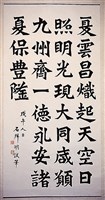 夏雲昌熾起天空日
照明光現大同咸願
九州齊一德永安諸
夏保豐隆
戊午八